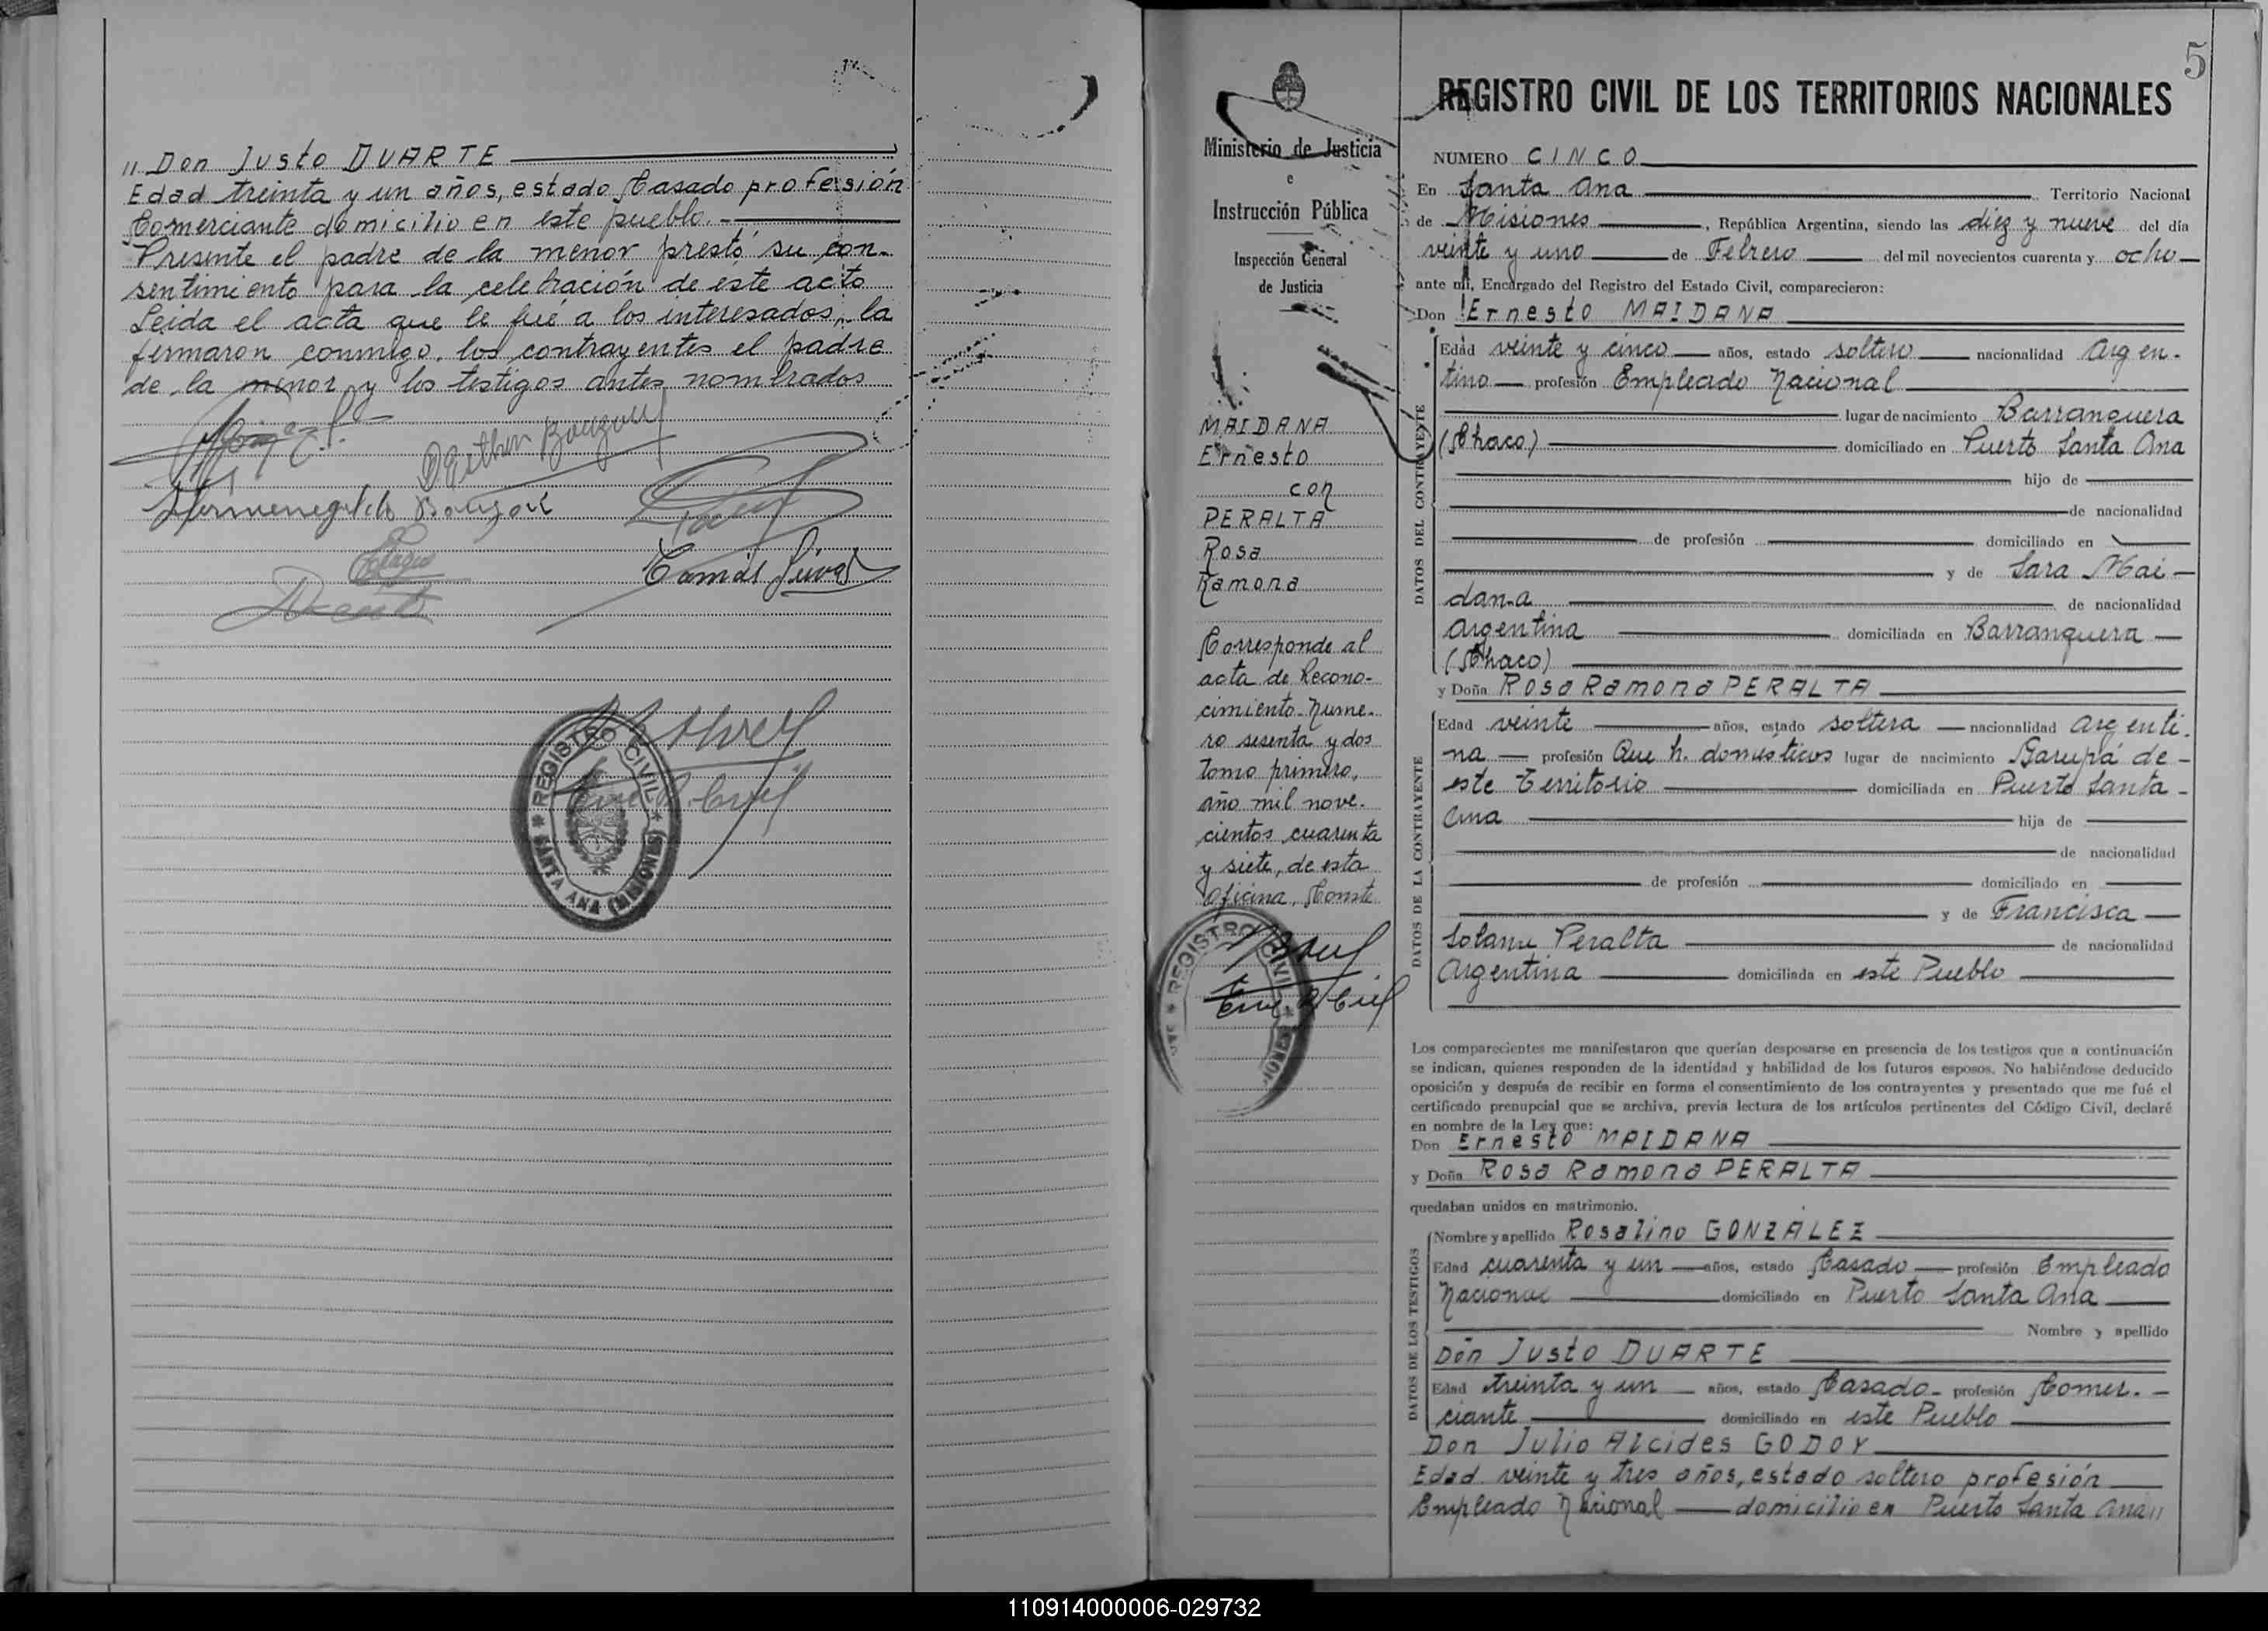 " Don Justo DUARTE
Edad treinta y un años, estado Casado profesión
Comerciante domicilio en este pueblo.-
Presente el padre de la menor prestó su con-
sentimiento para la celebración de este acto
Leida el acta que le fué a los interesados, la
firmaron conmigo, los contrayentes el padre
de la menor y los testigos antes nombrados
Hermenegildo
Tomás
REGISTRO CIVIL
SANTA ANA (MISIONES)
5
Ministerio de Justicia
e
Instrucción Pública
Inspección General
de Justicia
MAIDANA
Ernesto
con
PERALTA
Rosa
Ramona
Corresponde al
acta de Recono-
cimiento-Nume-
ro sesenta y dos
tomo primero,
año mil nove-
cientos cuarenta
y siete, de esta
Oficina, Conste
REGISTRO CIVIL
REGISTRO CIVIL DE LOS TERRITORIOS NACIONALES
NUMERO CINCO
En Santa Ana Territorio Nacional
de Misiones, República Argentina, siendo las diez y nueve del día
veinte y uno de Febrero del mil novecientos cuarenta y ocho
ante mí, Encargado del Registro del Estado Civil, comparecieron:
Don Ernesto MAIDANA
DATOS DEL CONTRAYENTE
Edad veinte y cinco años, estado soltero nacionalidad Argen-
tino profesión Empleado Nacional
lugar de nacimiento Barranquera
(Chaco) domiciliado en Puerto Santa Ana
hijo de
de nacionalidad
de profesión domiciliado en
y de Sara Mai-
dana de nacionalidad
Argentina domiciliada en Barranquera
(Chaco)
y Doña Rosa Ramona PERALTA
DATOS DE LA CONTRAYENTE
Edad veinte años, estado soltera nacionalidad Argenti-
na profesión Que h. domesticos lugar de nacimiento Garupá de
este Territorio domiciliada en Puerto Santa
Ana hija de
de nacionalidad
de profesión domiciliado en
y de Francisca
Solana Peralta de nacionalidad
Argentina domiciliada en este Pueblo
Los comparecientes me manifestaron que querían desposarse en presencia de los testigos que a continuación
se indican, quienes responden de la identidad y habilidad de los futuros esposos. No habiéndose deducido
oposición y después de recibir en forma el consentimiento de los contrayentes y presentado que me fué el
certificado prenupcial que se archiva, previa lectura de los artículos pertinentes del Código Civil, declaré
en nombre de la Ley que:
Don Ernesto MAIDANA
y Doña Rosa Ramona PERALTA
quedaban unidos en matrimonio.
DATOS DE LOS TESTIGOS
Nombre y apellido Rosalino GONZÁLEZ
Edad cuarenta y un años, estado Casado profesión Empleado
Nacional domiciliado en Puerto Santa Ana
Nombre y apellido
Don Justo DUARTE
Edad treinta y un años, estado Casado- profesión Comer.-
ciante domiciliado en este Pueblo
Don Julio Alcides GODOY
Edad veinte y tres años, estado soltero profesión
Empleado Nacional domicilio en Puerto Santa Ana"
110914000006-029732